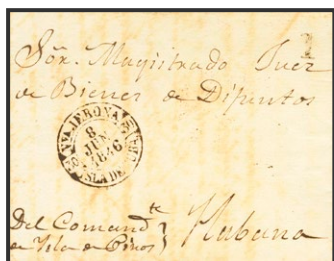 1
Sōr. Magistrado Juez
de Bienes de Difuntos
Na. JERONA
8
JUN.
1846
ISLA DE CUBA
Del Comandte
en Isla de Pinos
Habana